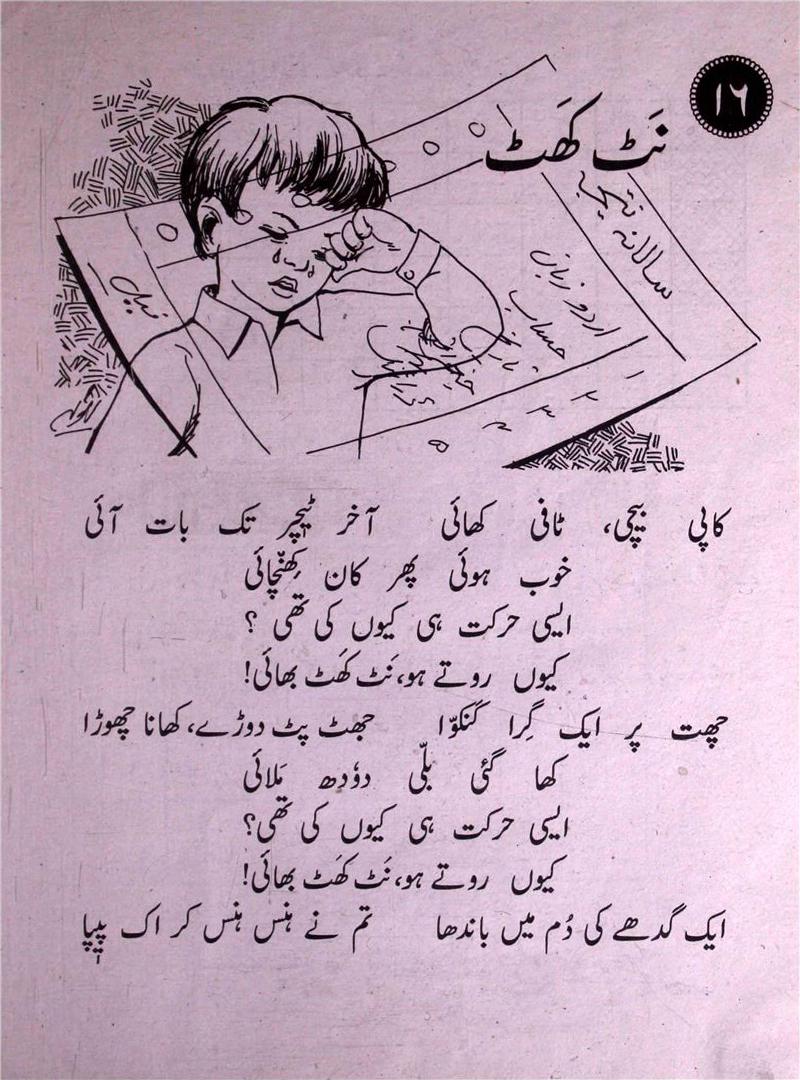 ۱۶
نَٹ کھَٹ
سالانہ نتیجہ
اردو زبان
حساب
۱
۲
۳
۴
۵
کاپی بیچی، ٹافی کھائی آخر ٹیچر تک بات آئی
خوب ہوئی پھر کان کِھنّچائی
ایسی حرکت ہی کیوں کی تھی ؟
کیوں روتے ہو، نَٹ کھَٹ بھائی!
چھت پر ایک گِرا کَنکوّا جھٹ پٹ دوڑے، کھانا چھوڑا
کھا گئی بلّی دوٗدھ مَلائی
ایسی حرکت ہی کیوں کی تھی؟
کیوں روتے ہو، نَٹ کھَٹ بھائی!
ایک گدھے کی دُم میں باندھا تم نے ہنس ہنس کر اک پیپا